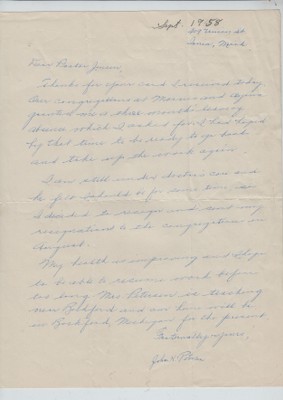 Sept. 1958
Dear Pastor Jensen:
Thanks for your card I received today.
Our congregations at Marion and
granted me a three months leave of
absence which I asked for. I had hoped
by that time to be ready to go back
and take up the work again.
I am still under doctor's care and
should be for some time, so
I decided to resign and sent my
resignation to the congregations in
August.
My health is improving and I hope
to be able to resume work before
too long. Mrs. Petersen is teaching
near Rockford and our home will be
in Rockford, Michigan for the present.
Fraternally yours,
John